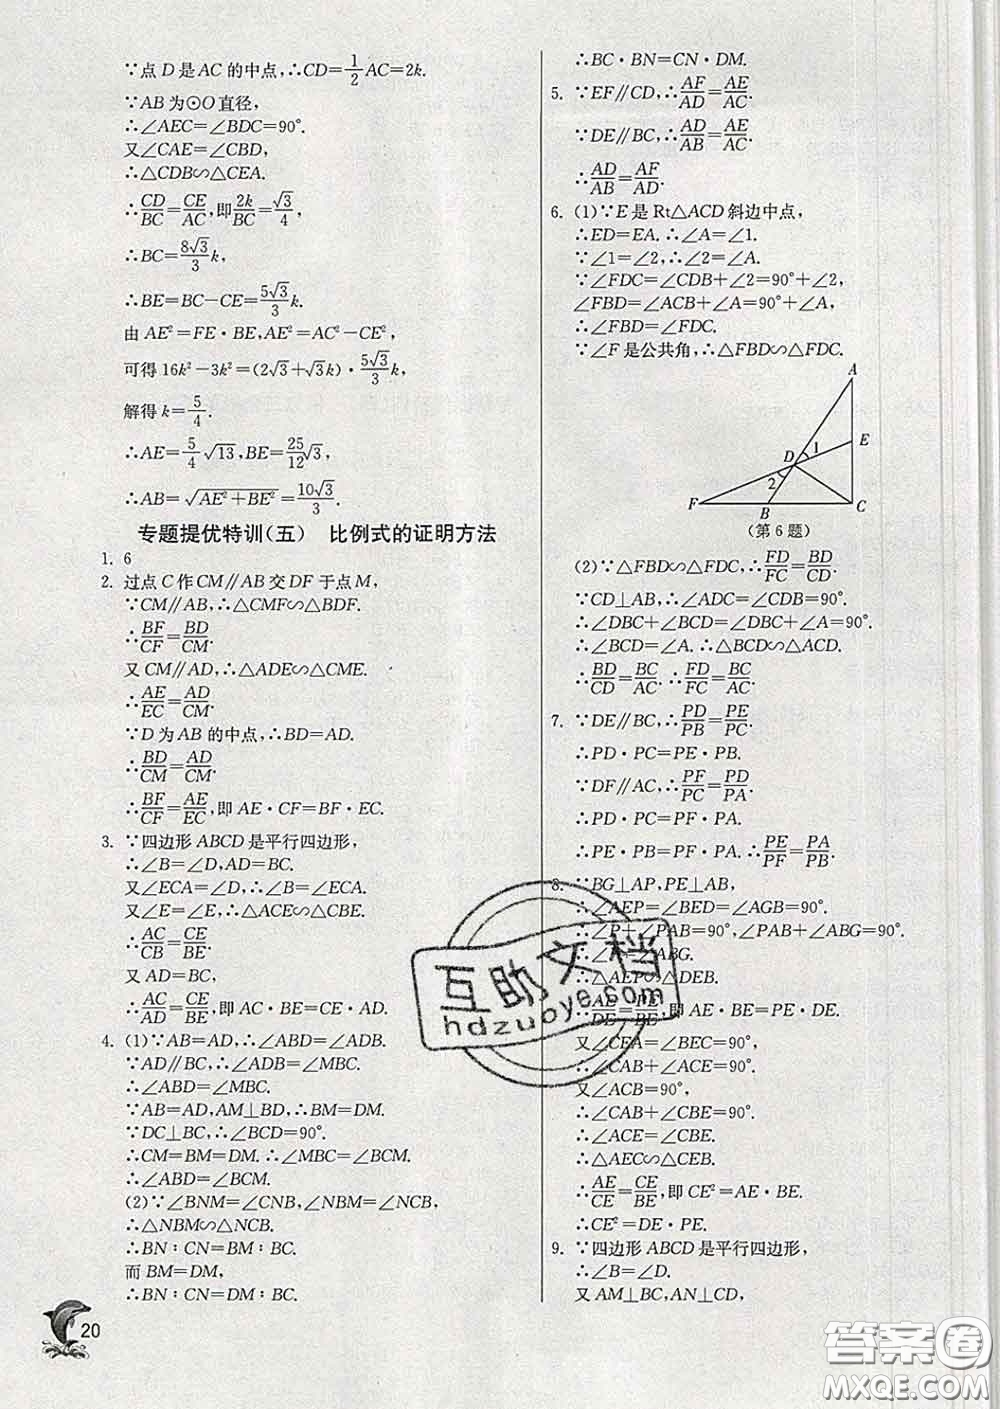 ∵点D是AC的中点,∴CD=1/2AC=2k.
∵AB为⊙O直径,
∴∠AEC=∠BDC=90°.
又∠CAE=∠CBD,
∴△CDB∽△CEA.
∴CD/BC=CE/AC,即2k/BC=√3/4,
∴BC=8√3/3k,
∴BE=BC-CE=5√3/3k.
由AE²=FE·BE,AE²=AC²-CE²,
可得16k²-3k²=(2√3+√3k)·5√3/3k,
解得k=5/4.
∴AE=5/4√13,BE=25/12√3,
∴AB=√(AE²+BE²)=10√3/3.
专题提优特训(五) 比例式的证明方法
1. 6
2. 过点C作CM∥AB交DF于点M,
∵CM∥AB,∴△CMF∽△BDF.
∴BF/CF=BD/CM.
又CM∥AD,∴△ADE∽△CME.
∴AE/EC=AD/CM.
∵D为AB的中点,∴BD=AD.
∴BD/CM=AD/CM.
∴BF/CF=AE/EC,即AE·CF=BF·EC.
3. ∵四边形ABCD是平行四边形,
∴∠B=∠D,AD=BC.
又∠ECA=∠D,∴∠B=∠ECA.
又∠E=∠E,∴△ACE∽△CBE.
∴AC/CB=CE/BE.
又AD=BC,
∴AC/AD=CE/BE,即AC·BE=CE·AD.
4. (1)∵AB=AD,∴∠ABD=∠ADB.
∵AD∥BC,∴∠ADB=∠MBC.
∴∠ABD=∠MBC.
∵AB=AD,AM⊥BD,∴BM=DM.
∵DC⊥BC,∴∠BCD=90°.
∴CM=BM=DM.∴∠MBC=∠BCM.
∴∠ABD=∠BCM.
(2)∵∠BNM=∠CNB,∠NBM=∠NCB,
∴△NBM∽△NCB.
∴BN∶CN=BM∶BC.
而BM=DM,
∴BN∶CN=DM∶BC.
∴BC·BN=CN·DM.
5. ∵EF∥CD,∴AF/AD=AE/AC.
∵DE∥BC,∴AD/AB=AE/AC.
∴AD/AB=AF/AD.
6. (1)∵E是Rt△ACD斜边中点,
∴ED=EA.∴∠A=∠1.
∵∠1=∠2,∴∠2=∠A.
∵∠FDC=∠CDB+∠2=90°+∠2,
∠FBD=∠ACB+∠A=90°+∠A,
∴∠FBD=∠FDC.
∵∠F是公共角,∴△FBD∽△FDC.
A
E
D
1
2
F
B
C
(第6题)
(2)∵△FBD∽△FDC,∴FD/FC=BD/CD.
∵CD⊥AB,∴∠ADC=∠CDB=90°.
∴∠DBC+∠BCD=∠DBC+∠A=90°.
∴∠BCD=∠A.∴△BCD∽△ACD.
∴BD/CD=BC/AC.∴FD/FC=BC/AC.
7. ∵DE∥BC,∴PD/PB=PE/PC.
∴PD·PC=PE·PB.
∵DF∥AC,∴PF/PC=PD/PA.
∴PD·PC=PF·PA.
∴PE·PB=PF·PA.∴PE/PF=PA/PB.
8. ∵BG⊥AP,PE⊥AB,
∴∠AEP=∠BED=∠AGB=90°.
∴∠P+∠PAB=90°,∠PAB+∠ABG=90°.
∴∠P=∠ABG.
∴△AEP∽△DEB.
∴AE/DE=PE/BE,即AE·BE=PE·DE.
又∠CEA=∠BEC=90°,
∴∠CAB+∠ACE=90°.
又∠ACB=90°,
∴∠CAB+∠CBE=90°.
∴∠ACE=∠CBE.
∴△AEC∽△CEB.
∴AE/CE=CE/BE,即CE²=AE·BE.
∴CE²=DE·PE.
9. ∵四边形ABCD是平行四边形,
∴∠B=∠D.
又AM⊥BC,AN⊥CD,
20
互助文档
hdzuoye.com
答案圈
MXQE.COM